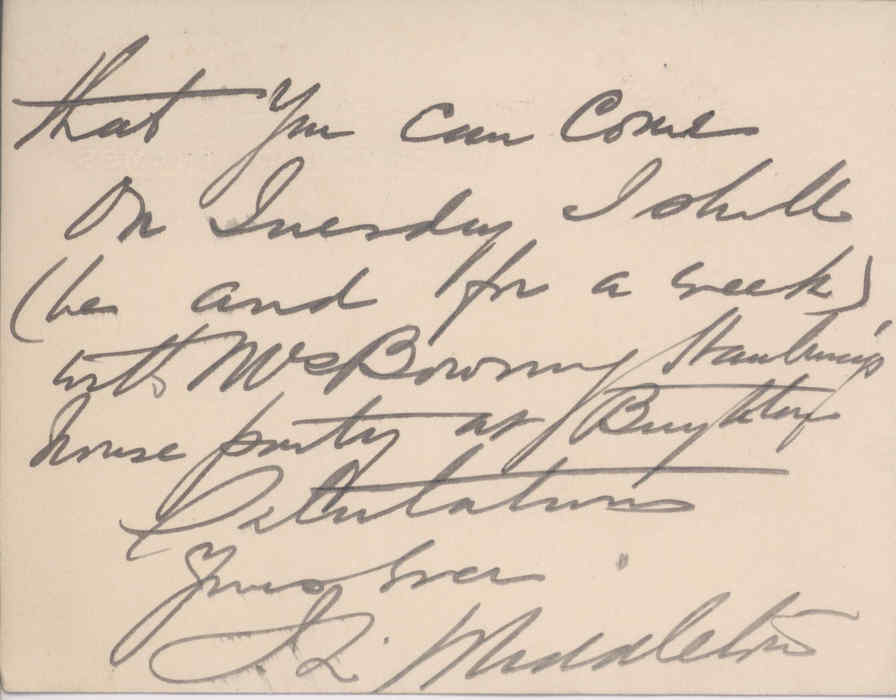 that you can come
On Tuesday I shall
(be and for a week)
with Mrs Bowring
house party at
Yours Ever
Middleton